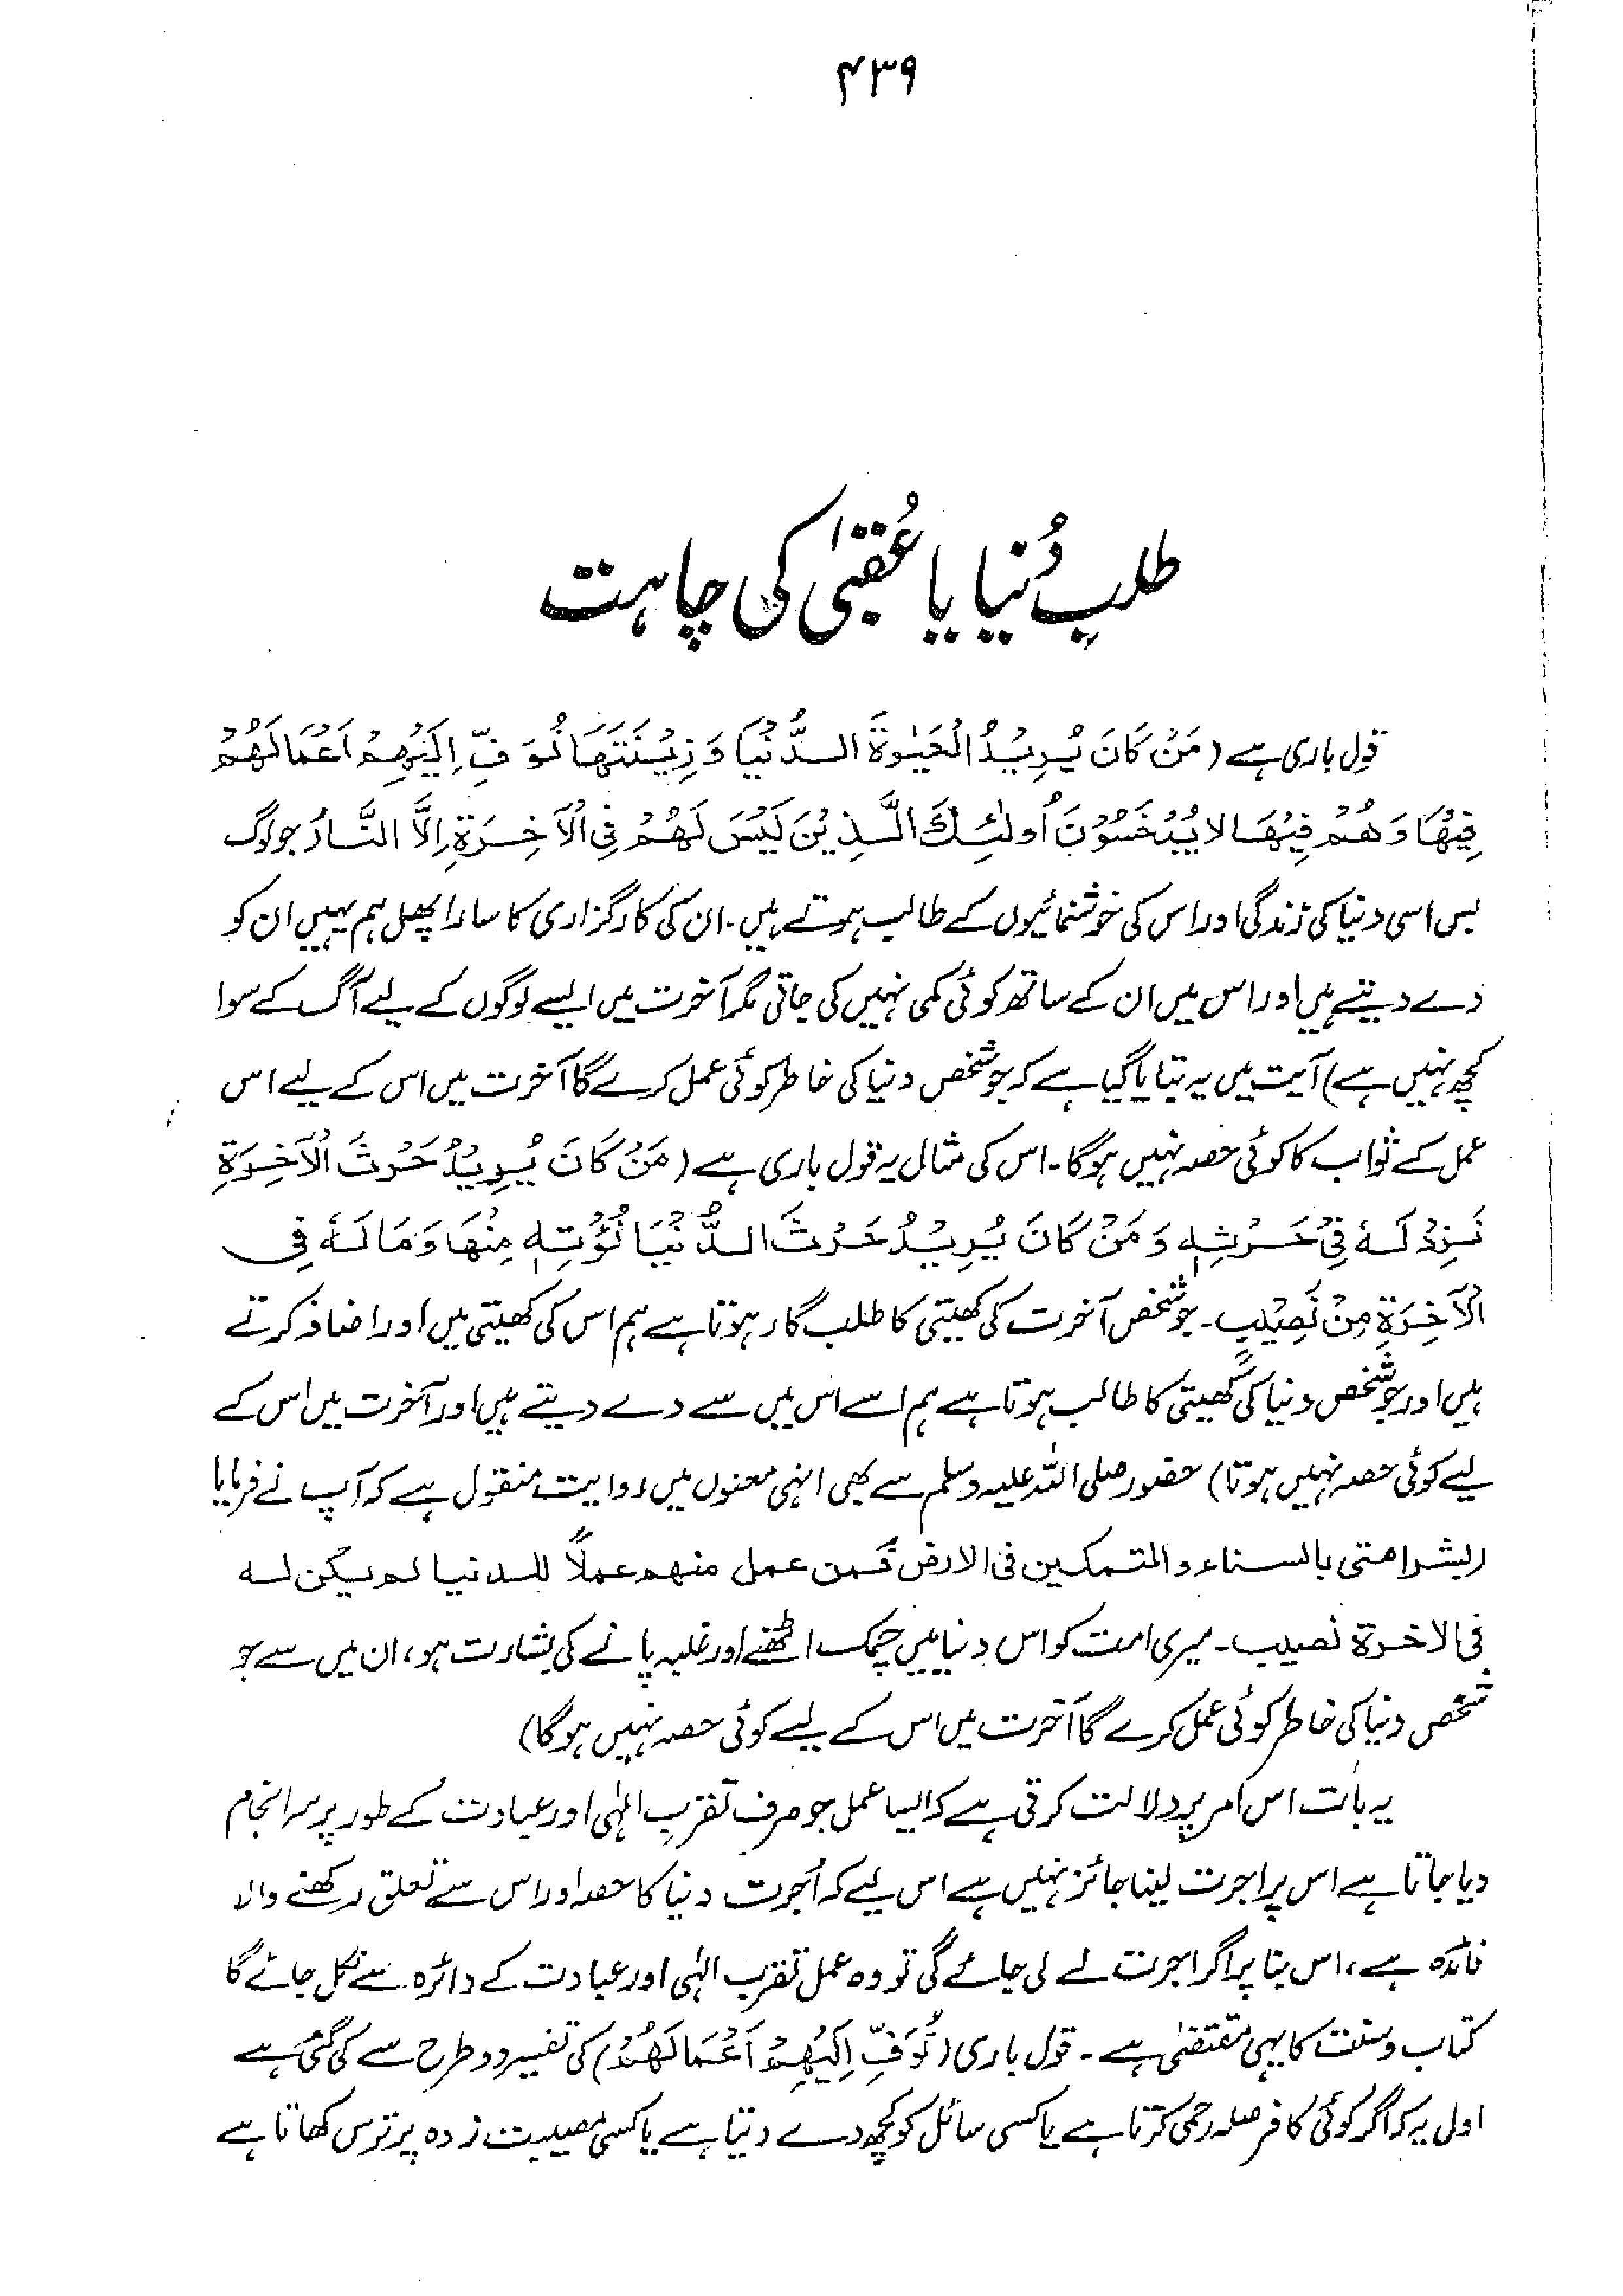 ۴۳۹
طلبِ دُنیا یا عُقبیٰ کی چاہت
قول باری ہے (مَنْ كَانَ يُرِيْدُ الْحَيٰوةَ الدُّنْيَا وَزِيْنَتَهَا نُوَفِّ اِلَيْهِمْ اَعْمَالَهُمْ
فِيْهَا وَهُمْ فِيْهَا لَا يُبْخَسُوْنَ اُولٰئِكَ الَّذِيْنَ لَيْسَ لَهُمْ فِى الْاٰخِرَةِ اِلَّا النَّارُ جو لوگ
بس اسی دنیا کی زندگی اور اس کی خوشنمائیوں کے طالب ہوتے ہیں۔ ان کی کارگزاری کا سارا پھل ہم یہیں ان کو
دے دیتے ہیں اور اس میں ان کے ساتھ کوئی کمی نہیں کی جاتی مگر آخرت میں ایسے لوگوں کے لیے آگ کے سوا
کچھ نہیں ہے) آیت میں یہ بتایا گیا ہے کہ جو شخص دنیا کی خاطر کوئی عمل کرے گا آخرت میں اس کے لیے اس
عمل کے ثواب کا کوئی حصہ نہیں ہوگا۔ اس کی مثال یہ قول باری ہے (مَنْ كَانَ يُرِيْدُ حَرْثَ الْاٰخِرَةِ
نَزِدْ لَهٗ فِىْ حَرْثِهٖ وَمَنْ كَانَ يُرِيْدُ حَرْثَ الدُّنْيَا نُؤْتِهٖ مِنْهَا وَمَا لَهٗ فِى
الْاٰخِرَةِ مِنْ نَصِيْبٍ۔ جو شخص آخرت کی کھیتی کا طلب گار ہوتا ہے ہم اس کی کھیتی میں اور اضافہ کرتے
ہیں اور جو شخص دنیا کی کھیتی کا طالب ہوتا ہے ہم اسے اس میں سے دے دیتے ہیں اور آخرت میں اس کے
لیے کوئی حصہ نہیں ہوتا) حضور صلی اللہ علیہ وسلم سے بھی انہی معنوں میں روایت منقول ہے کہ آپ نے فرمایا
(بشر امتی بالسناء والتمکین فی الارض فَمن عمل منهم عملاً للدنیا لم یکن له
فی الاخرة نصیب۔ میری امت کو اس دنیا میں چمک اٹھنے اور غلبہ پانے کی بشارت ہو، ان میں سے جو
شخص دنیا کی خاطر کوئی عمل کرے گا آخرت میں اس کے لیے کوئی حصہ نہیں ہوگا)
یہ بات اس امر پر دلالت کرتی ہے کہ ایسا عمل جو صرف تقربِ الٰہی اور عبادت کے طور پر سرانجام
دیا جاتا ہے اس پر اجرت لینا جائز نہیں ہے اس لیے کہ اُجرت دنیا کا حصہ اور اس سے تعلق رکھنے والا
فائدہ ہے، اس بنا پر اگر اجرت لے لی جائے گی تو وہ عمل تقرب الٰہی اور عبادت کے دائرہ سے نکل جائے گا
کتاب وسنت کا یہی مقتضیٰ ہے۔ قول باری (نُوَفِّ اِلَيْهِمْ اَعْمَالَهُمْ) کی تفسیر دو طرح سے کی گئی ہے
اول یہ کہ اگر کوئی کافر صلہ رحمی کرتا ہے یا کسی سائل کو کچھ دے دیتا ہے یا کسی مصیبت زدہ پر ترس کھاتا ہے